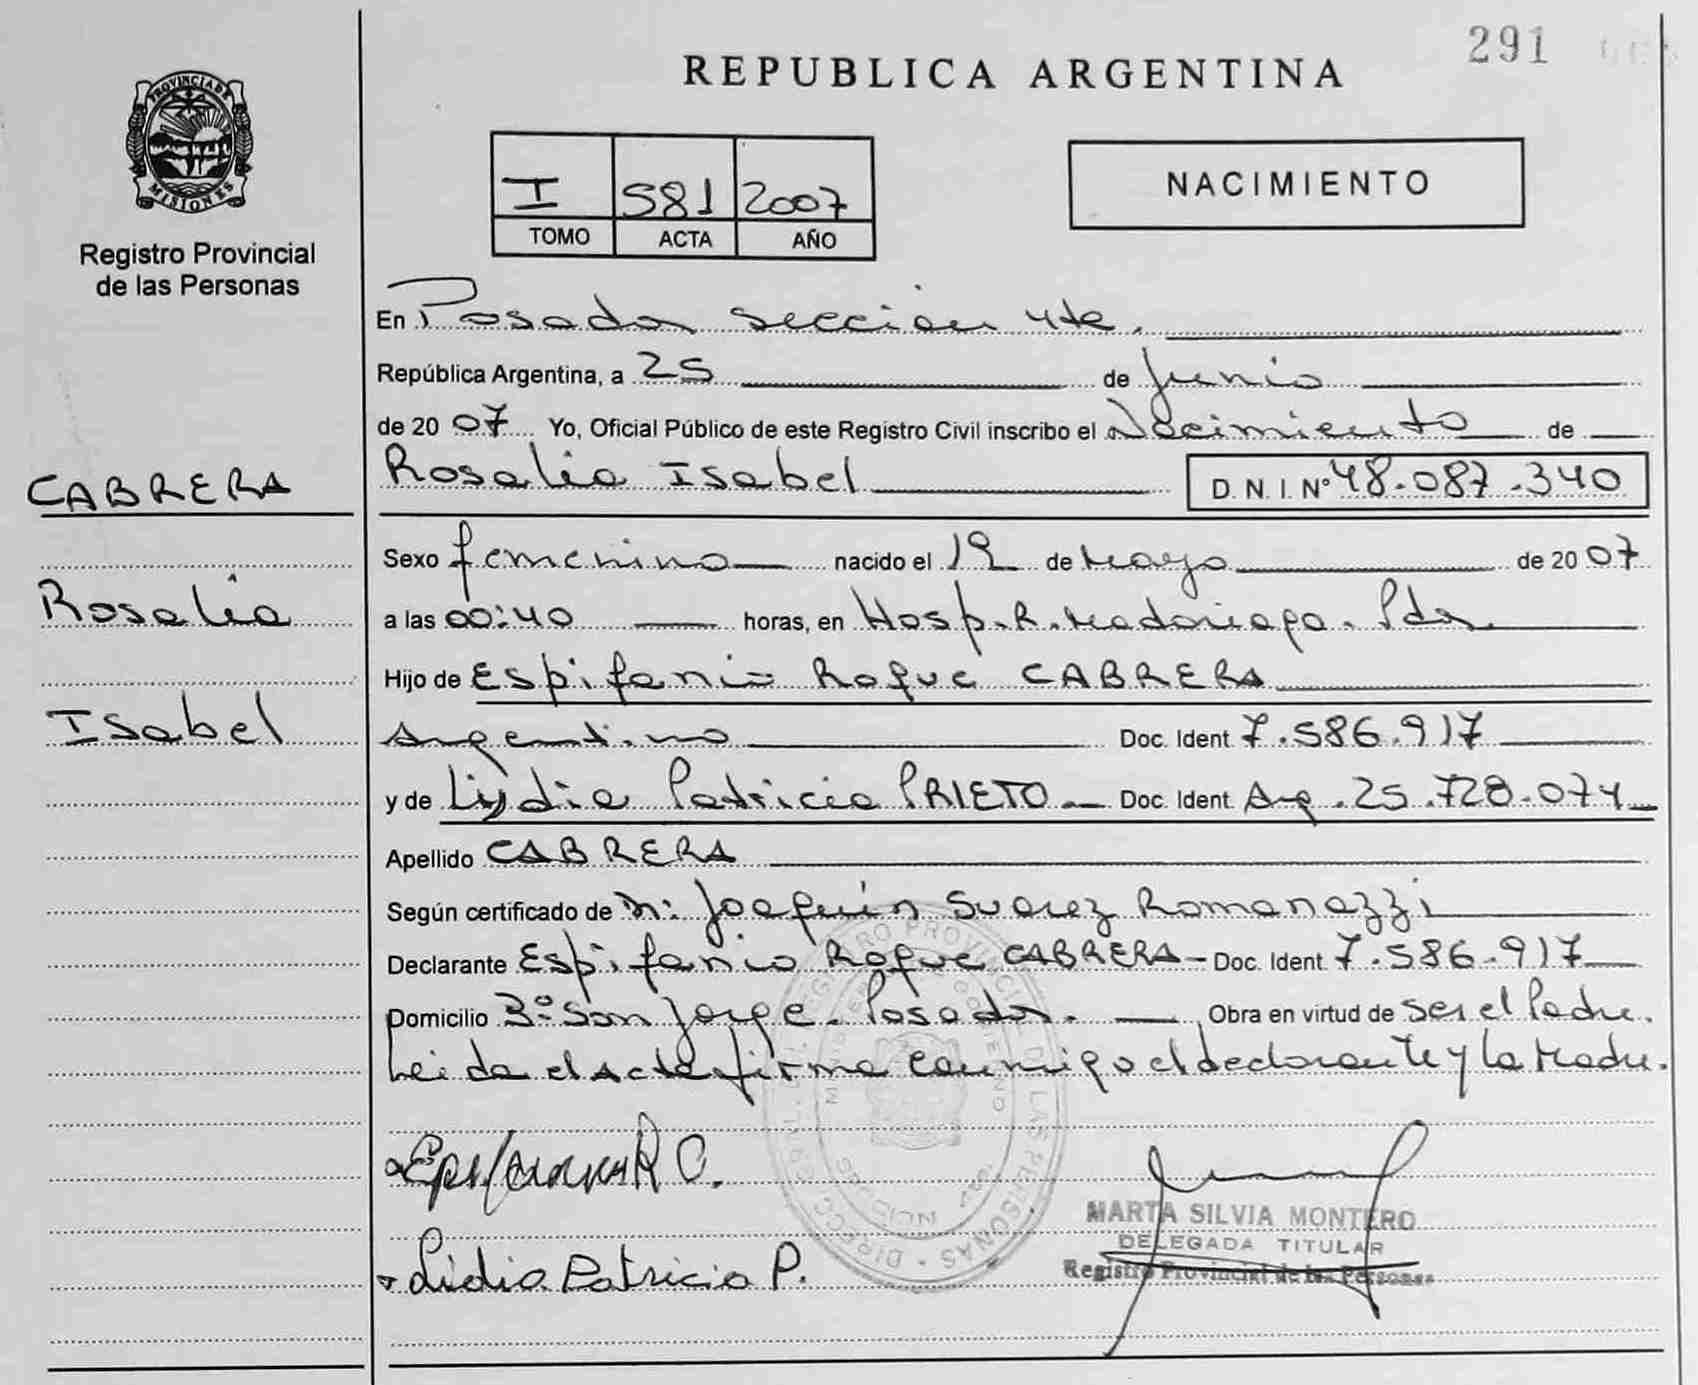 291
REPUBLICA ARGENTINA
PROVINCIA DE
MISIONES
Registro Provincial
de las Personas
I 581 2007
TOMO ACTA AÑO
NACIMIENTO
En Posadas sección 4ta.
República Argentina, a 25 de Junio
de 2007 Yo, Oficial Público de este Registro Civil inscribo el Nacimiento de
Rosalia Isabel D. N. I. Nº 48.087.340
CABRERA
Rosalia
Isabel
Sexo femenino nacido el 19 de Mayo de 2007
a las 00:40 horas, en Hosp. R. Madariaga. Pdas.
Hijo de Espifanio Roque CABRERA
Argentino Doc. Ident 7.586.917
y de Lydia Patricia PRIETO Doc. Ident Arg. 25.728.074
Apellido CABRERA
Según certificado de Joaquín Suarez Romanazzi
Declarante Espifanio Roque CABRERA - Doc. Ident 7.586.917
Domicilio Bº San Jorge. Posadas. Obra en virtud de ser el Padre.
Leida el Acta firma conmigo el declarante y la Madre.
R C.
Lidia Patricia P.
MARTA SILVIA MONTERO
DELEGADA TITULAR
Registro Provincial de las Personas